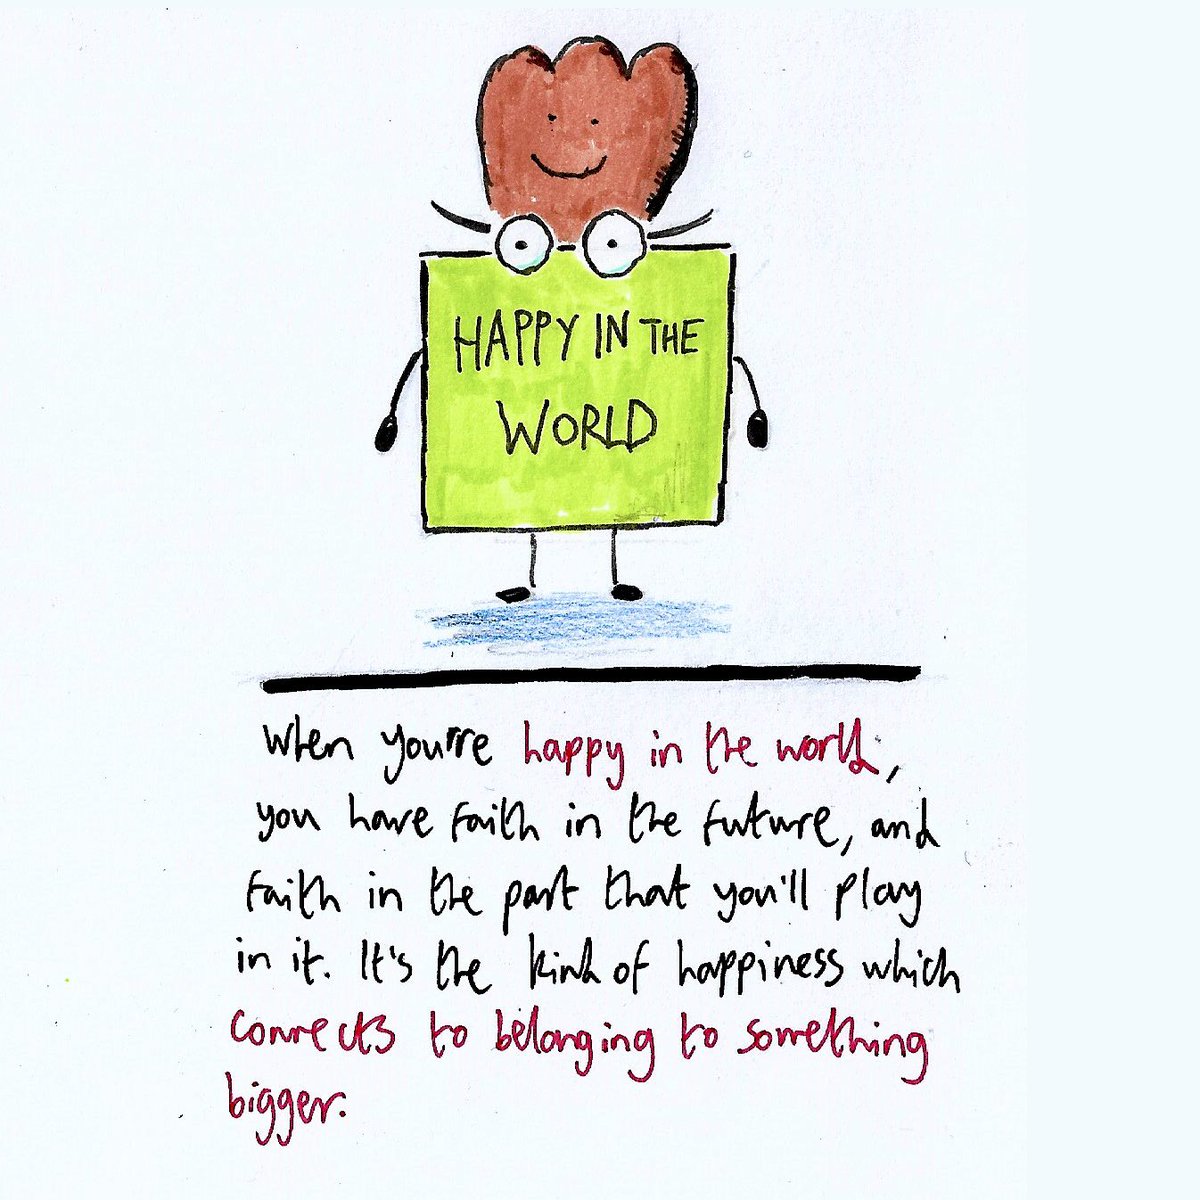 HAPPY IN THE
WORLD
When you're happy in the world,
you have faith in the future, and
faith in the part that you'll play
in it. It's the kind of happiness which
connects to belonging to something
bigger.